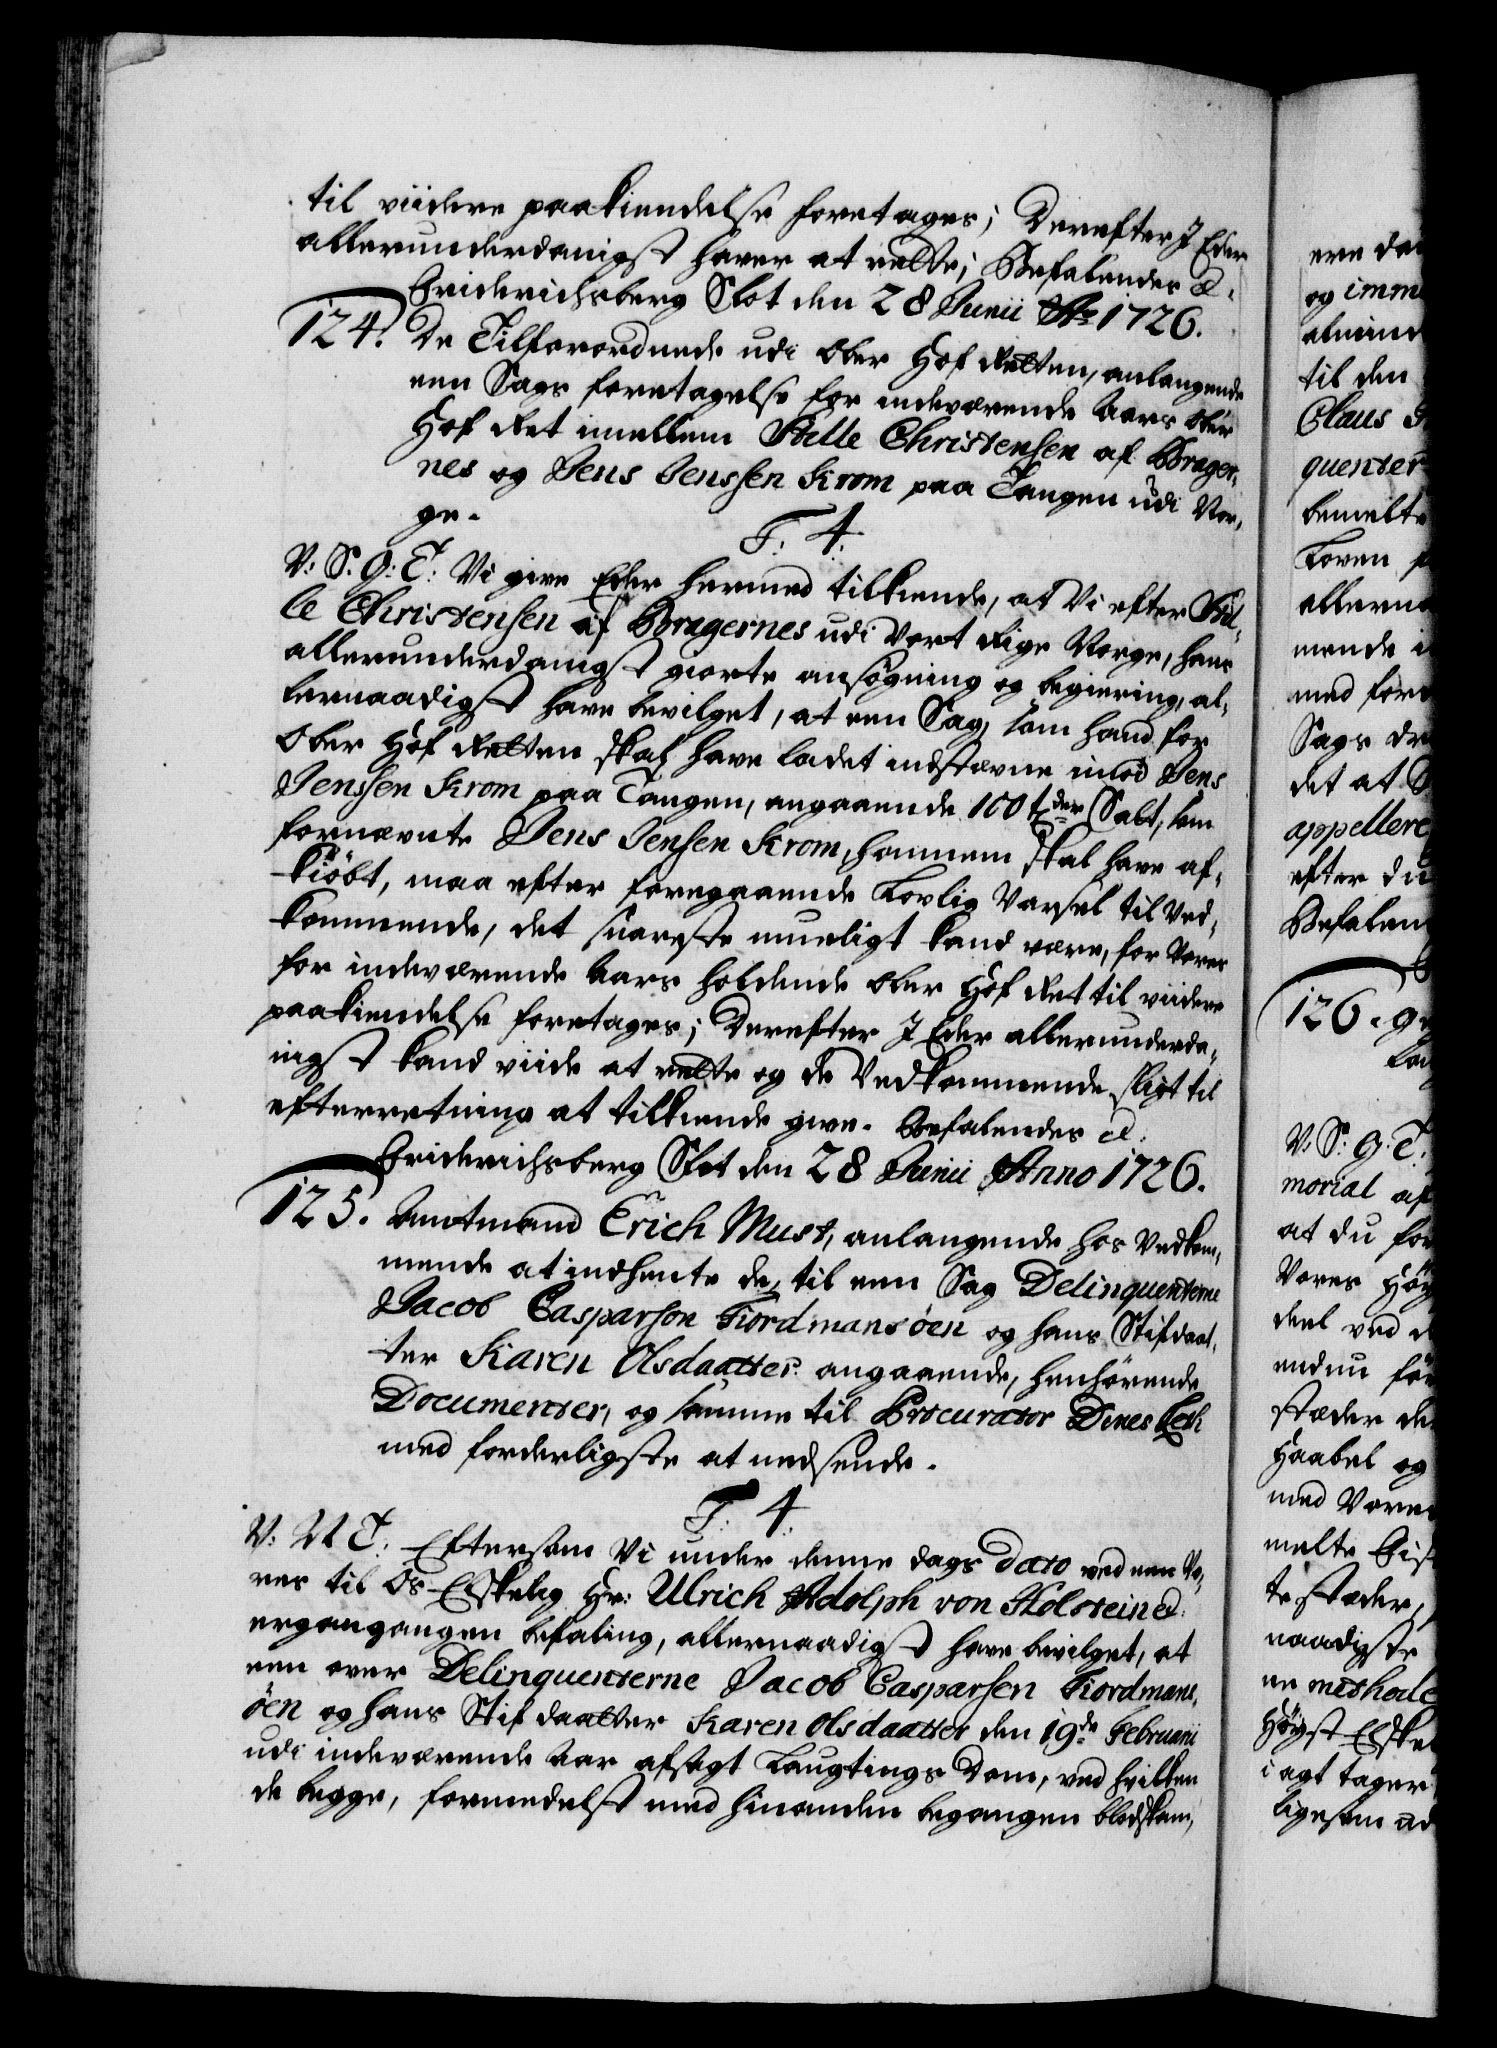 til viidere paakiendelse foretages; Derefter I Eder
allerunderdanigst haver at rette; Befalendes &.
Friderichsberg Slot den 28 Junii Ao 1726.
124. De Tilforordnede udi Ober Hof Retten, anlangende
een Sags foretagelse for indeværende Aars Ober
Hof Ret imellem Helle Christensen af Brager-
nes og Jens Jenssen Krom paa Tangen udi Nor-
ge.
F. 4.
V: S: G: T: Vi give Eder hermed tilkiende, at Vi efter Hel-
le Christensen af Bragernes udi Vort Rige Norge, hans
allerunderdanigst giorte ansøgning og begiering, al-
lernaadigst have bevilget, at een Sag, som hand for
Ober Hof Retten skal have ladet indstævne imod Jens
Jenssen Krom paa Tangen, angaaende 100 Tdr Salt, som
fornævnte Jens Jensen Krom, hannem skal have af-
kiöbt, maa efter foregaaende Lovlig Varsel til Ved-
kommende, det snareste mueligt kand være, for Vores
for indeværende Aars holdende Ober Hof Ret til viidere
paakiendelse foretages; Derefter I Eder allerunderda-
nigst kand viide at rette og de Vedkommende sligt til
efterretning at tilkiende give. Befalendes &:
Friderichsberg Slot den 28 Junii Anno 1726.
125. Amtmand Erich Must, anlangende hos Vedkom-
mende at indhente de, til een Sag Delinquenterne
Jacob Casparsen Fiordmansøen og hans Stifdaat-
ter Karen Olsdaatter angaaende, henhörende
Documenter, og samme til Procurator Dines
med forderligste at nedsende.
F. 4.
V: M T: Eftersom Vi under denne dags dato ved een Vo-
res til Os Elskelig Hr: Ulrich Adolph von Holstein &:
ergangangen befaling, allernaadigst have bevilget, at
een over Delinquenterne Jacob Casparsen Fiordmans-
öen og hans Stif daatter Karen Olsdaatter den 19de Februarii
udi indeværende Aar afsagt Laugtings Dom, ved hvilken
de begge, formedelst med hinanden begangen blodskam,
ere
og
til den
Claus
quenter
bemelte
Loven
mende
med
Sags
det at
appellere
efter du
Befalen
126.
V: S: G: T:
morial af
at du for
Vores
deel ved
endnu
stæder
og
med Vores
melte
te stæder,
naadigste
methode
Høyst
i agt tager
ligesom